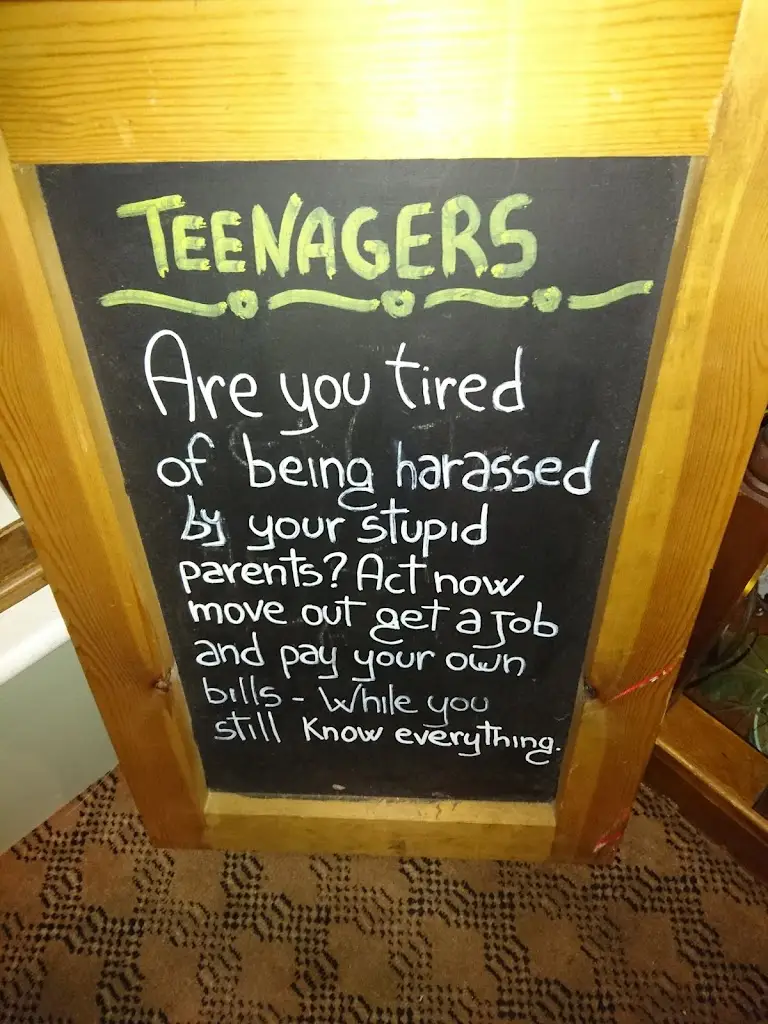 TEENAGERS
Are you tired
of being harassed
by your stupid
parents? Act now
move out get a Job
and pay your own
bills - While you
still Know everything.